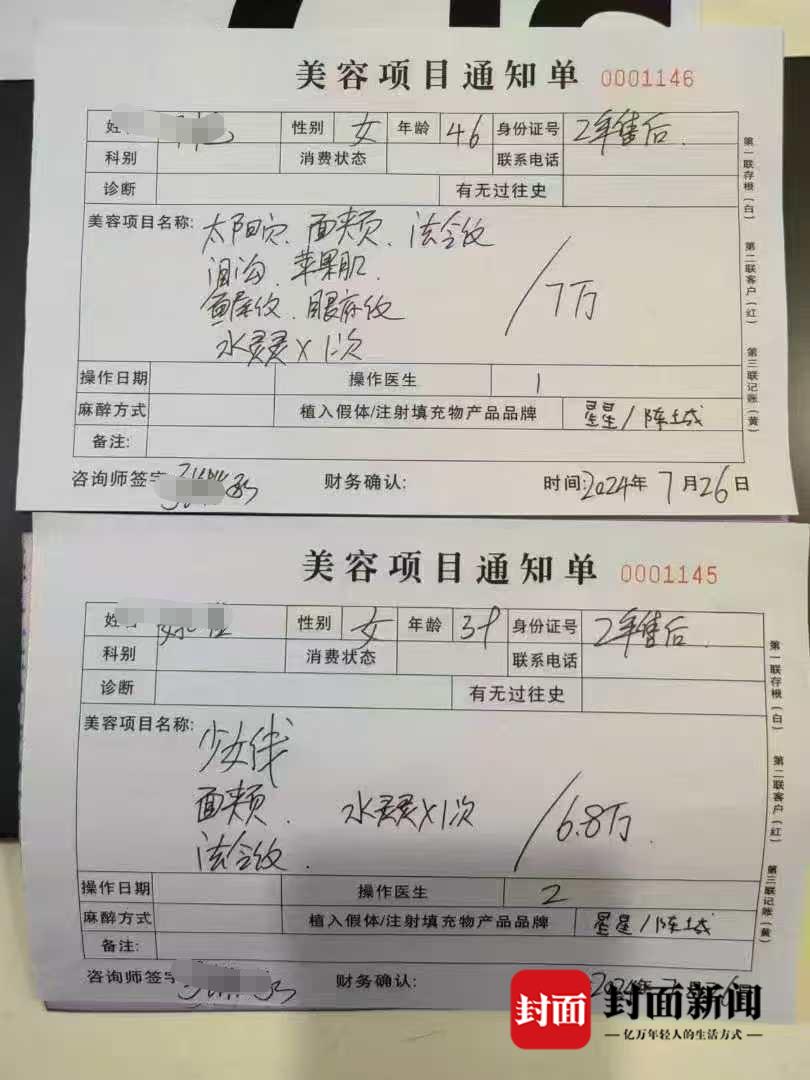 美容项目通知单 0001146
姓 性别 女 年龄 46 身份证号 2年售后.
科别 消费状态 联系电话
诊断 有无过往史
美容项目名称: 太阳穴、面颊、法令纹
泪沟、苹果肌
鱼尾纹、眼底纹 /7万
水灵灵×1次
操作日期 操作医生 1
麻醉方式 植入假体/注射填充物产品品牌 星星/陈城
备注:
咨询师签字 财务确认: 时间:2024年 7月26日
第一联存根(白) 第二联客户(红) 第三联记账(黄)
美容项目通知单 0001145
姓 性别 女 年龄 身份证号 2年售后.
科别 消费状态 联系电话
诊断 有无过往史
美容项目名称:
少女线
面颊、 水灵灵×1次 /6.8万.
法令纹.
操作日期 操作医生 2
麻醉方式 植入假体/注射填充物产品品牌 星星/陈城
备注:
咨询师签字 财务确认: 2024年
第一联存根(白) 第二联客户(红) 第三联记账(黄)
封面 封面新闻
亿万年轻人的生活方式